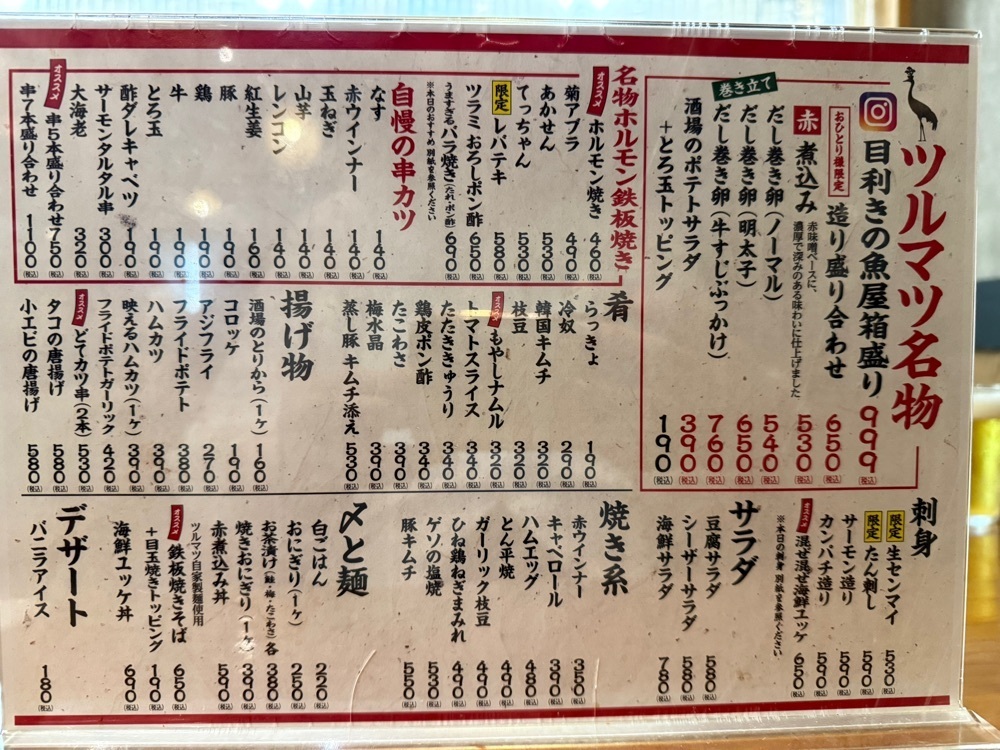 ツルマツ名物
目利きの魚屋箱盛り 999(税込)
おひとり様限定 造り盛り合わせ 650(税込)
赤 煮込み 530(税込)
赤味噌ベースに、
濃厚で深みのある味わいに仕上げました
巻き立て
だし巻き卵(ノーマル) 540(税込)
だし巻き卵(明太子) 650(税込)
だし巻き卵(牛すじぶっかけ) 760(税込)
酒場のポテトサラダ 390(税込)
+とろ玉トッピング 190(税込)
名物ホルモン鉄板焼き
オススメ ホルモン焼き 460(税込)
菊アブラ 490(税込)
あかせん 530(税込)
てっちゃん 530(税込)
限定 レバテキ 580(税込)
ツラミおろしポン酢 650(税込)
うますぎるバラ焼き(たれ・ポン酢) 690(税込)
※本日のおすすめ 別紙を参照ください
自慢の串カツ
なす 140(税込)
赤ウインナー 140(税込)
玉ねぎ 140(税込)
山芋 140(税込)
レンコン 140(税込)
紅生姜 160(税込)
豚 190(税込)
鶏 190(税込)
牛 190(税込)
とろ玉 190(税込)
酢ダレキャベツ 190(税込)
サーモンタルタル串 300(税込)
大海老 320(税込)
オススメ 串5本盛り合わせ 750(税込)
串7本盛り合わせ 1100(税込)
肴
らっきょ 190(税込)
冷奴 290(税込)
韓国キムチ 320(税込)
枝豆 320(税込)
オススメ もやしナムル 320(税込)
トマトスライス 340(税込)
たたききゅうり 340(税込)
鶏皮ポン酢 340(税込)
たこわさ 390(税込)
梅水晶 390(税込)
蒸し豚 キムチ添え 530(税込)
揚げ物
酒場のとりから(1ヶ) 160(税込)
コロッケ 190(税込)
アジフライ 270(税込)
フライドポテト 380(税込)
ハムカツ 390(税込)
映えるハムカツ(1ヶ) 390(税込)
フライドポテトガーリック 420(税込)
オススメ どてカツ串(2本) 530(税込)
タコの唐揚げ 580(税込)
小エビの唐揚げ 580(税込)
刺身
限定 生センマイ 530(税込)
限定 たん刺し 590(税込)
サーモン造り 590(税込)
カンパチ造り 590(税込)
オススメ 混ぜ混ぜ海鮮ユッケ 650(税込)
※本日の刺身 別紙を参照ください
サラダ
豆腐サラダ 580(税込)
シーザーサラダ 580(税込)
海鮮サラダ 780(税込)
焼き系
赤ウインナー 350(税込)
キャベロール 390(税込)
ハムエッグ 480(税込)
とん平焼 490(税込)
ガーリック枝豆 490(税込)
ひね鶏ねぎまみれ 490(税込)
ゲソの塩焼 530(税込)
豚キムチ 550(税込)
〆と麺
白ごはん 220(税込)
おにぎり(1ヶ) 250(税込)
お茶漬け(鮭・梅・たこわさ)各 380(税込)
焼きおにぎり(1ヶ) 390(税込)
赤煮込み丼 590(税込)
ツルマツ自家製麺使用
オススメ 鉄板焼きそば 650(税込)
+目玉焼きトッピング 190(税込)
海鮮ユッケ丼 690(税込)
デザート
バニラアイス 180(税込)